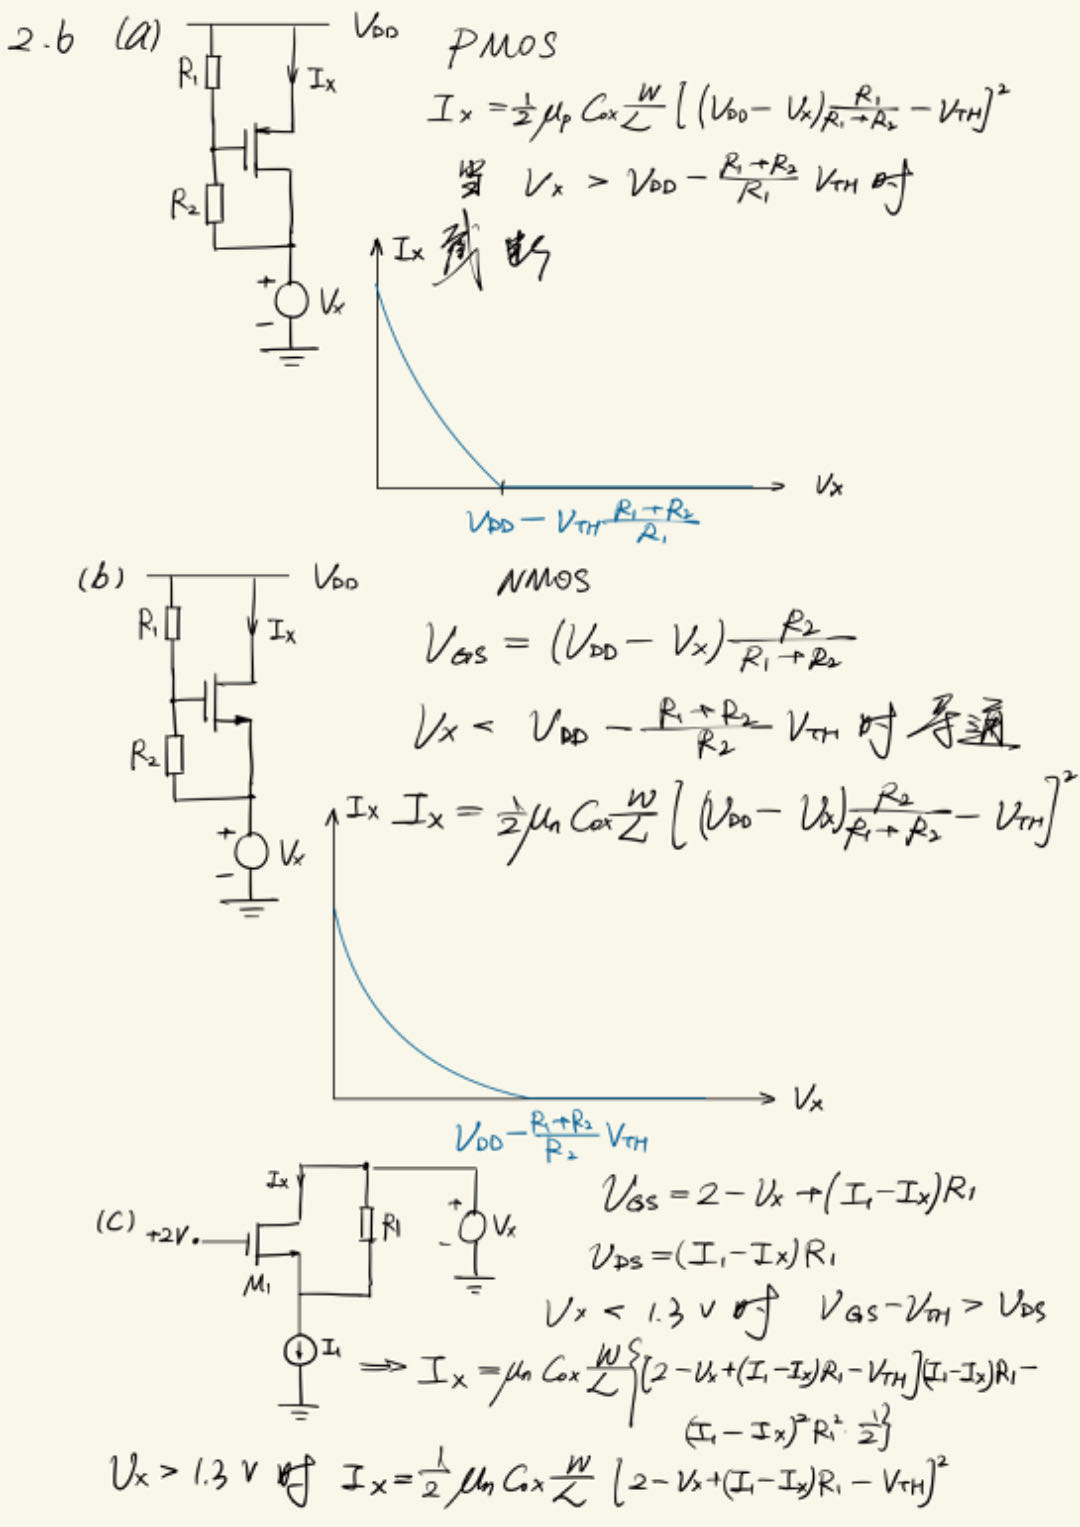 2.6 (a) VDD PMOS
R1 Ix
Ix = 1/2 μp Cox W/L [(VDD - Vx) R1/(R1+R2) - VTH]²
R2
当 Vx > VDD - (R1+R2)/R1 VTH 时
Ix 截断
+
-
Vx
Vx
VDD - VTH (R1+R2)/R1
(b) VDD NMOS
R1 Ix
VGS = (VDD - Vx) R2/(R1+R2)
R2
Vx < VDD - (R1+R2)/R2 VTH 时 导通
Ix Ix = 1/2 μn Cox W/L [(VDD - Vx) R2/(R1+R2) - VTH]²
+
-
Vx
Vx
VDD - (R1+R2)/R2 VTH
(C) +2V Ix R1 + - Vx
M1
I1
VGS = 2 - Vx + (I1 - Ix)R1
VDS = (I1 - Ix)R1
Vx < 1.3 V 时 VGS - VTH > VDS
⇒ Ix = μn Cox W/L {[2 - Vx + (I1 - Ix)R1 - VTH](I1 - Ix)R1 -
(I1 - Ix)² R1² · 1/2}
Vx > 1.3 V 时 Ix = 1/2 μn Cox W/L [2 - Vx + (I1 - Ix)R1 - VTH]²